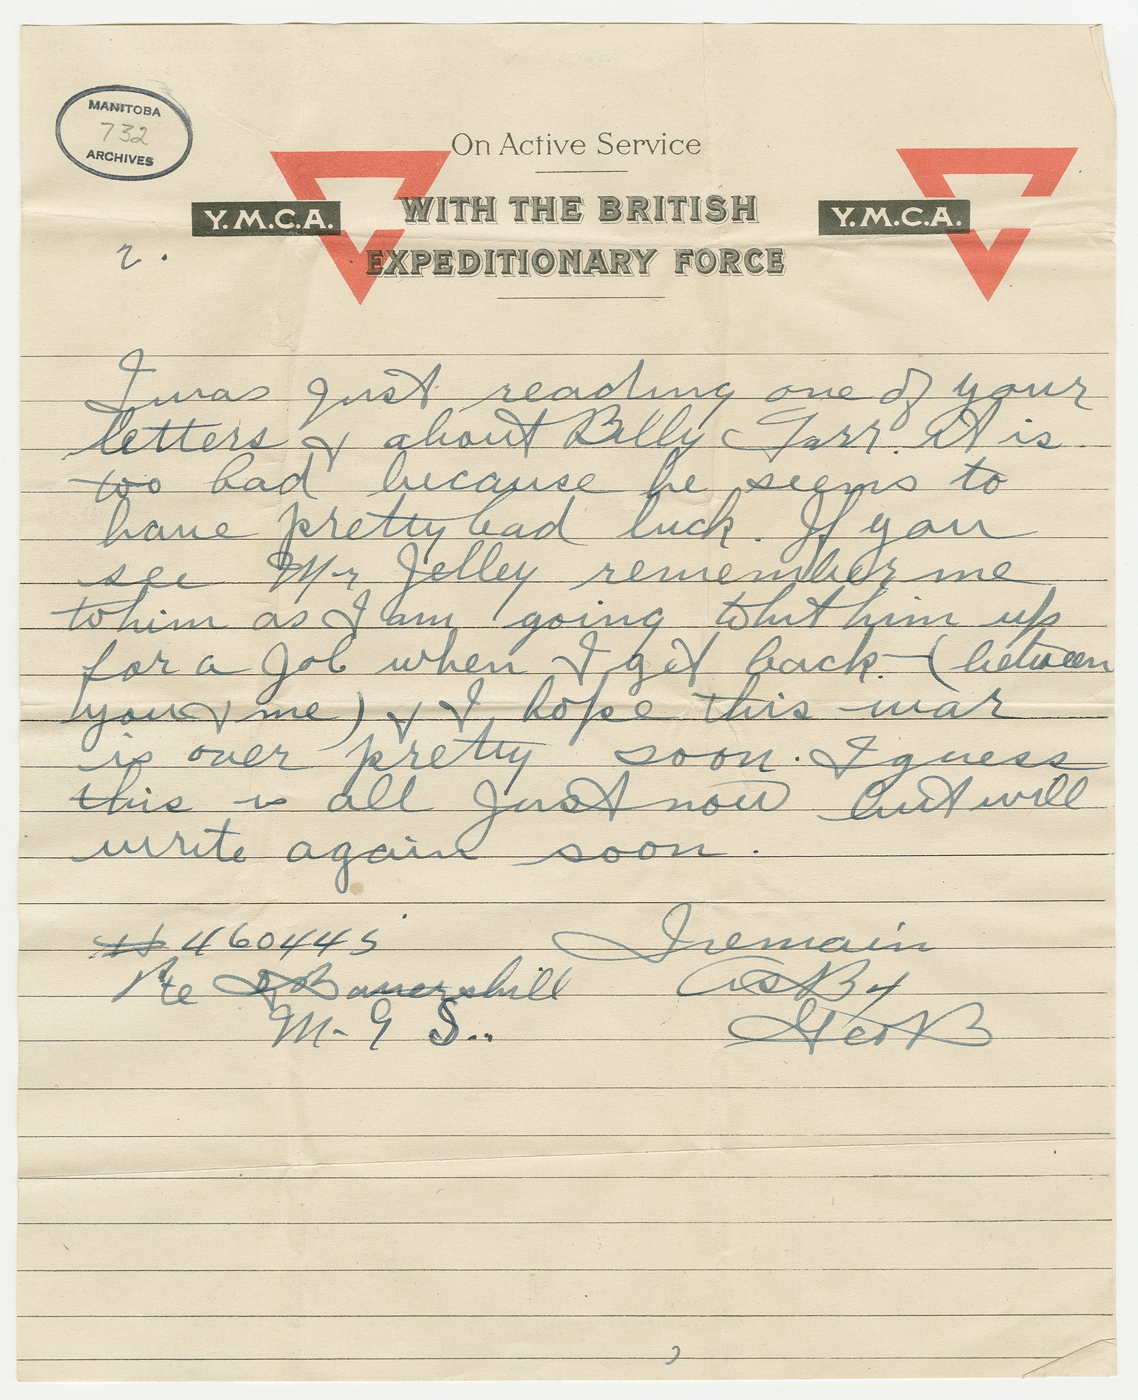 MANITOBA
732
ARCHIVES
On Active Service
Y.M.C.A. WITH THE BRITISH Y.M.C.A.
2. EXPEDITIONARY FORCE
I was just reading one of your
letters & about Billy Carr. It is
too bad because he seems to
have pretty bad luck. If you
see Mr Jelley remember me
to him as I am going to hit him up
for a job when I get back. (between
you & me) & I hope this war
is over pretty soon. I guess
this is all just now but will
write again soon.
# 460445 I remain
Pte G Battershill As By
M-G S.. Geo B